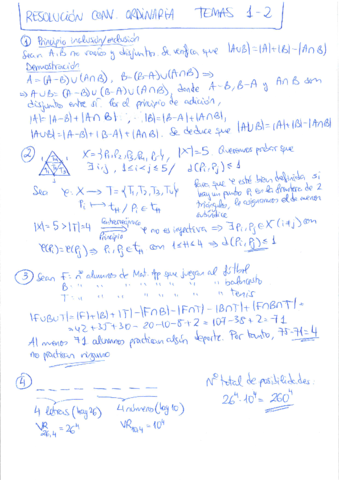 RESOLUCIÓN CONV. ORDINARIA TEMAS 1-2
① Principio inclusión/exclusión
Sean A, B no vacíos y disjuntos. Se verifica que |A∪B|=|A|+|B|-|A∩B|
Demostración
A=(A-B)∪(A∩B), B=(B-A)∪(A∩B) ⇒
⇒ A∪B=(A-B)∪(B-A)∪(A∩B), donde A-B, B-A y A∩B son
disjuntos entre sí. Por el principio de adición,
|A|=|A-B|+|A∩B|, |B|=|B-A|+|A∩B|,
|A∪B|=|A-B|+|B-A|+|A∩B|. Se deduce que |A∪B|=|A|+|B|-|A∩B|
② X={P₁,P₂,P₃,P₄,P₅}, |X|=5. Queremos probar que
∃ i,j, 1≤i<j≤5 / d(Pᵢ,Pⱼ)≤1
Sea φ: X → T={T₁,T₂,T₃,T₄}
Para que φ esté bien definida si
hay un punto Pᵢ en la frontera de 2
triángulos, le asignamos el de menor
subíndice
|X|=5>|T|=4 ⇒ φ no es inyectiva ⇒ ∃ Pᵢ,Pⱼ∈X (i≠j) con
Principio
φ(Pᵢ)=φ(Pⱼ) ⇒ Pᵢ,Pⱼ∈ con 1≤k≤4 ⇒ d(Pᵢ,Pⱼ)≤1
③ Sean F: nº alumnos de Mat. App que juegan al fútbol
B: " " " " " " baloncesto
T: " " " " " " tenis
|F∪B∪T|=|F|+|B|+|T|-|F∩B|-|F∩T|-|B∩T|+|F∩B∩T|=
=42+35+30-20-10-8+2=107-38+2=71
Al menos 71 alumnos practican algún deporte. Por tanto, 75-71=4
no practican ninguno
④
4 letras (hay 26) 4 números (hay 10)
VR₂₆,₄=26⁴ VR₁₀,₄=10⁴
Nº total de posibilidades:
26⁴·10⁴=260⁴